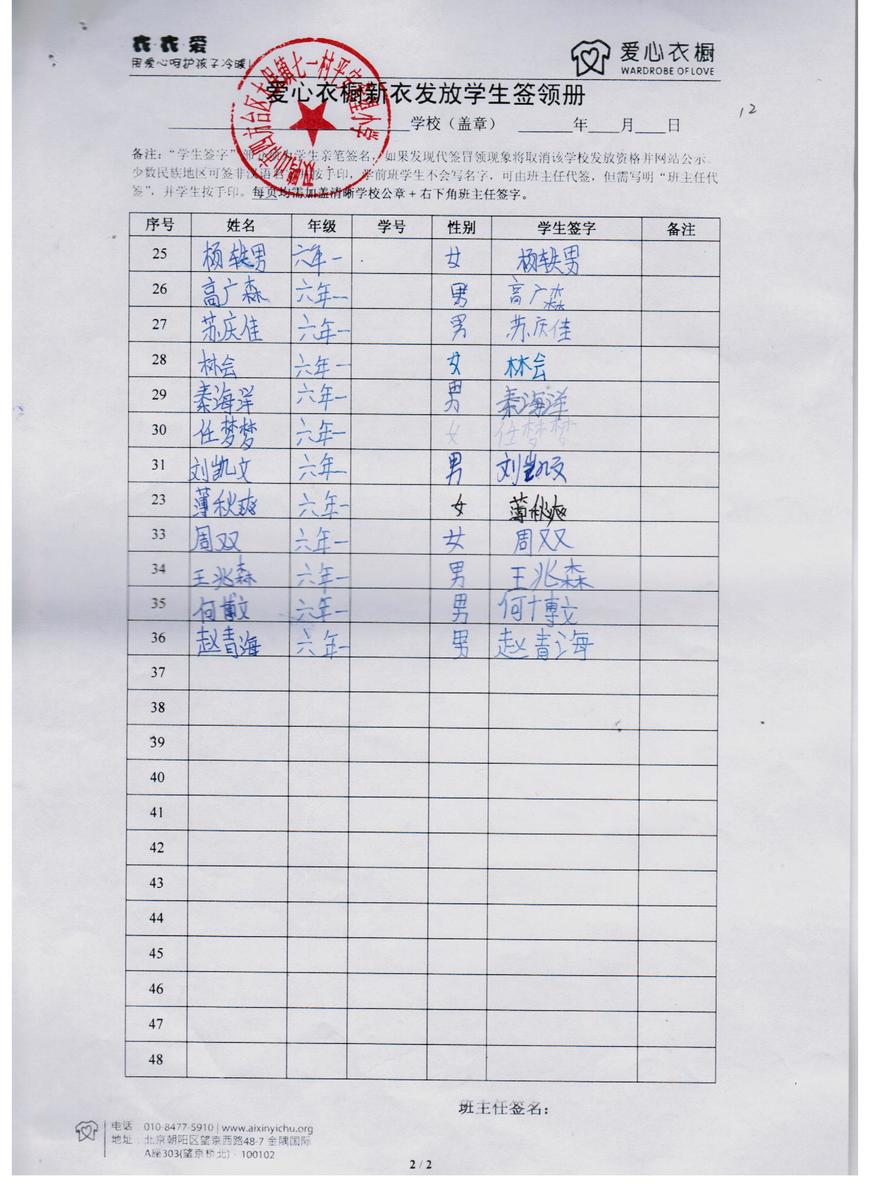 衣·衣·爱
用爱心呵护孩子冷暖!
爱心衣橱
WARDROBE OF LOVE
爱心衣橱新衣发放学生签领册
12
学校（盖章） 年 月 日
备注：“学生签字” 学生亲笔签名，如果发现代签冒领现象将取消该学校发放资格并网站公示。
少数民族地区可签非汉语名 按手印，学前班学生不会写名字，可由班主任代签，但需写明“班主任代
签”，并学生按手印。每页均需加盖清晰学校公章+右下角班主任签字。
序号 姓名 年级 学号 性别 学生签字 备注
25 杨轶男 六年一 女 杨轶男
26 高广森 六年一 男 高广森
27 苏庆佳 六年一 男 苏庆佳
28 林会 六年一 女 林会
29 秦海洋 六年一 男 秦海洋
30 任梦梦 六年一 女 任梦梦
31 刘凯文 六年一 男 刘凯文
23 薄秋爽 六年一 女 薄秋爽
33 周双 六年一 女 周双
34 王兆森 六年一 男 王兆森
35 何博文 六年一 男 何博文
36 赵青海 六年一 男 赵青海
37
38
39
40
41
42
43
44
45
46
47
48
班主任签名：
电话 010-8477-5910 | www.aixinyichu.org
地址：北京朝阳区望京西路48-7 金隅国际
A座303(望京桥北)·100102
2 / 2